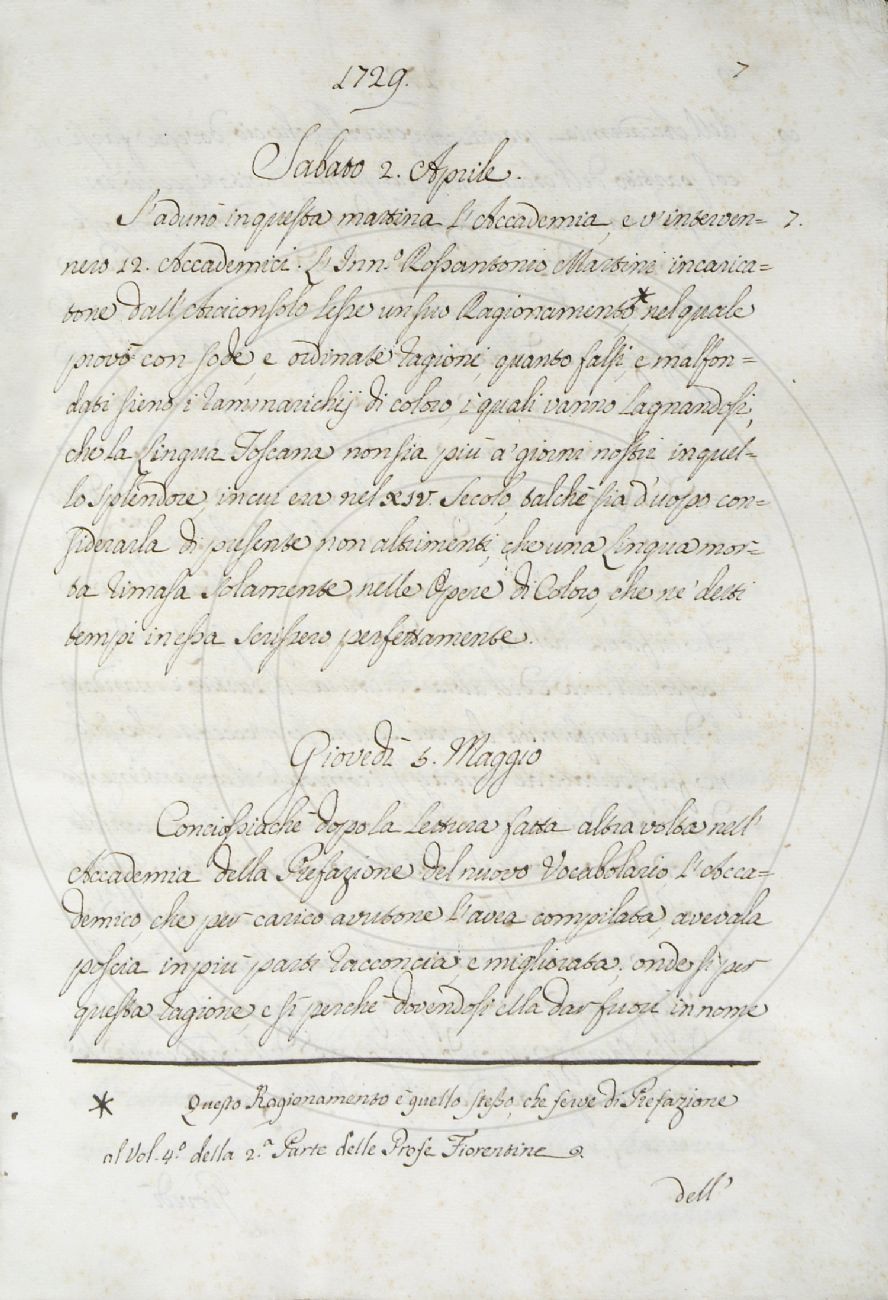 1729.
7
Sabato 2. Aprile.
S'adunò in questa mattina l'Accademia, e v'interven=
7.
nero 12. Accademici. L'Inn.º Rossantonio Martini incarica=
tone dall'Arciconsolo lesse un suo Ragionamento,* nel quale
provò con sode, e ordinate ragioni, quanto falsi, e malfon=
dati sieno i rammarichij di coloro, i quali vanno lagnandosi,
che la Lingua Toscana non sia più a' giorni nostri in quel=
lo splendore, in cui era nel XIV. Secolo, talchè sia d'uopo con=
siderarla di presente non altrimenti, che una Lingua mor=
ta rimasa solamente nelle Opere di Coloro, che ne' detti
tempi in essa scrissero perfettamente.
Giovedì 5. Maggio
Conciossiachè dopo la Lettura fatta altra volta nell'
Accademia della Prefazione del nuovo Vocabolario, l'Acca=
demico, che per carico avutone l'avea compilata, avevala
poscia in più parti racconcia, e migliorata; onde sì per
questa ragione, e sì perchè dovendosi ella dar fuori in nome
* Questo Ragionamento è quello stesso, che serve di Prefazione
al Vol. 4.º della 2.ª Parte delle Prose Fiorentine
dell'